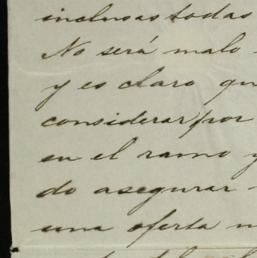 inclusas todas
No será malo
y es claro qu
considerar por
en el ramo y
do asegurar
una oferta